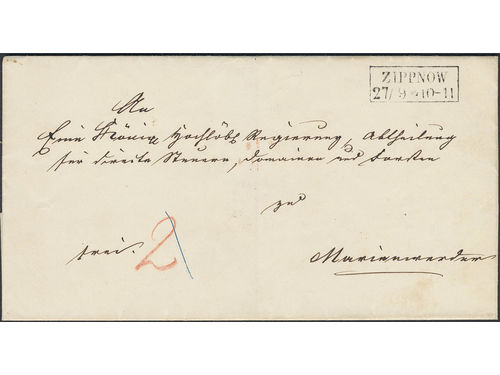 ZIPPNOW
27/9 * 10-11
An
Eine Königl. Hochlöbl. Regierung, Abtheilung
für directe Steuern, Domainen und Forsten
zu
frei.
2
Marienwerder